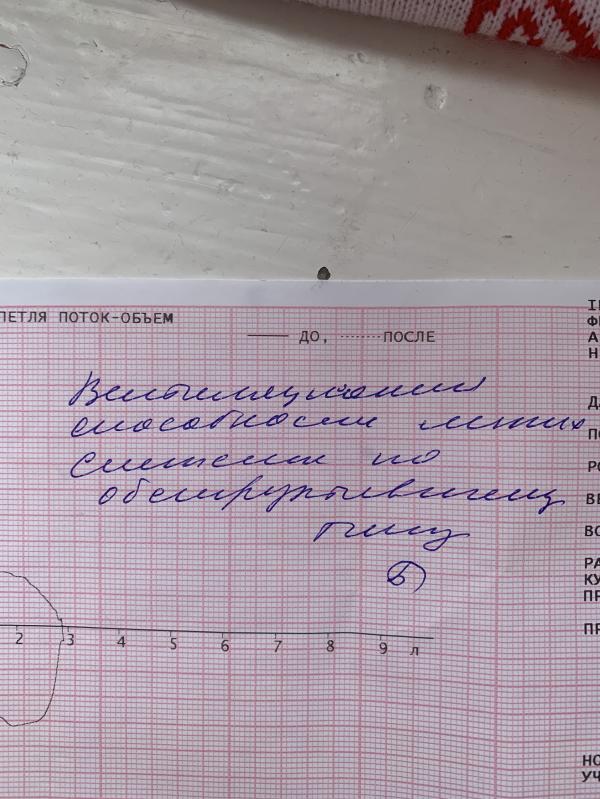 ПЕТЛЯ ПОТОК-ОБЪЕМ
ДО, ПОСЛЕ
Вентиляционная
способность легких
снижена по
обструктивному
типу
Б
2 3 4 5 6 7 8 9 л